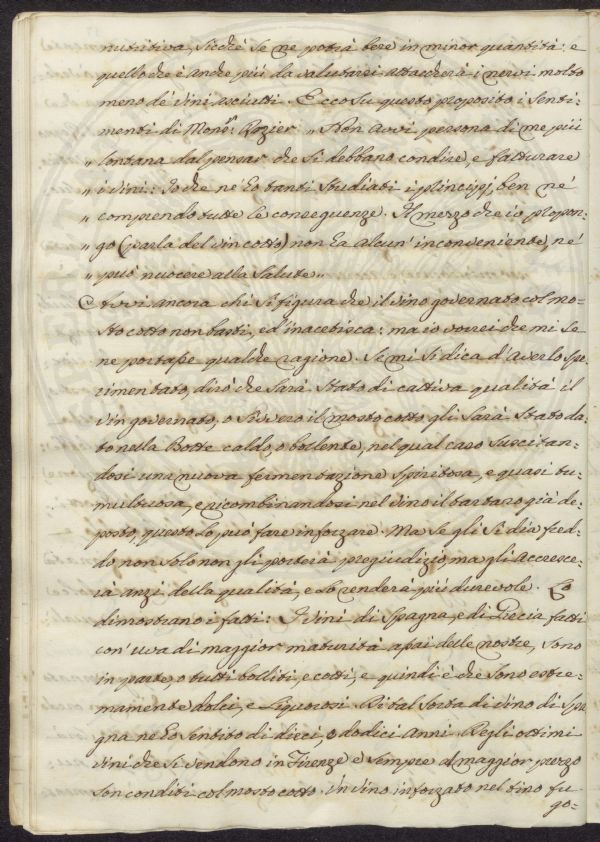 nutritiva, sicchè se ne potrà bere in minor quantità: e
quello che è anche più da valutarsi attaccherà i nervi molto
meno de' vini asciutti. Ecco su questo proposito i senti:
menti di Mons.r Rozier „ Non avvi persona di me più
„ lontana dal pensar che si debbano condire, e fatturare
„ i vini: Io che nè ho tanti studiati i principj, ben nè
„ comprendo tutte le conseguenze. Il mezzo che io propon:
„ go (parla del vin cotto) non ha alcun' inconveniente, nè
„ può nuocere alla salute „
Avvi ancora chi si figura che il vino governato col mo:
sto cotto non basti, ed' inacetisca: ma io vorrei che mi se
ne portasse qualche ragione. Se mi si dica d' averlo spe:
rimentato, dirò che sarà stato di cattiva qualità il
vin governato, o sivvero il mosto cotto gli sarà stato da:
to nella Botte caldo, o bollente, nel qual caso suscitan:
dosi una nuova fermentazione spiritosa, e quasi tu:
multuosa, e ricombinandosi nel vino il tartaro già de:
posto, questo lo può fare inforzare. Ma se gli si dia fred:
do non solo non gli porterà pregiudizio, ma gli accresce:
rà anzi della qualità, e lo renderà più durevole. Lo
dimostrano i fatti: I vini di Spagna, e di Grecia fatti
con' uva di maggior maturità assai delle nostre, sono
in parte, o tutti bolliti, e cotti, e quindi è che sono estre:
mamente dolci, e liquorosi. Di tal sorta di vino di Spa:
gna ne ho sentito di dieci, o dodici anni. Degli ottimi
vini che si vendono in Firenze e sempre al maggior prezzo
son conditi col mosto cotto. Un vino inforzato nel tino fu
go: